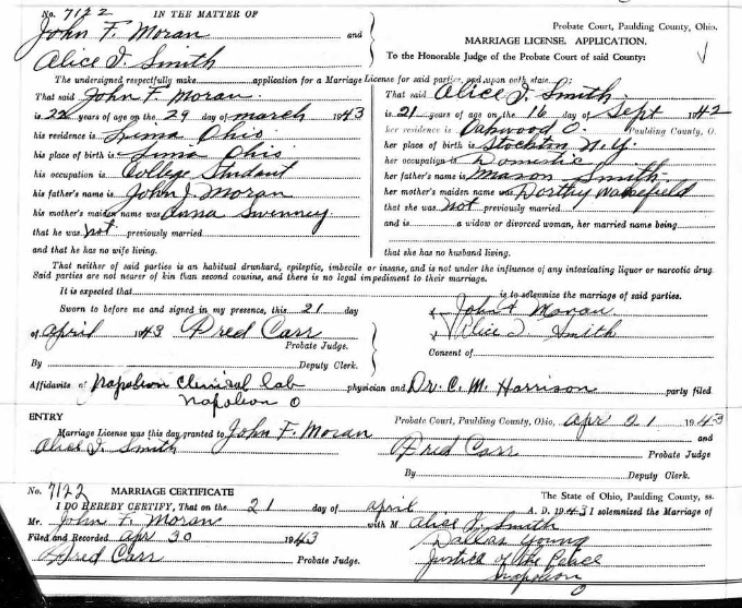 No. 7122 IN THE MATTER OF
John F. Moran and
Alice J. Smith
Probate Court, Paulding County, Ohio.
MARRIAGE LICENSE. APPLICATION.
To the Honorable Judge of the Probate Court of said County:
The undersigned respectfully make application for a Marriage License for said parties, and upon oath state:
That said John F. Moran
is 22 years of age on the 29 day of march 1943
his residence is Lima Ohio
his place of birth is Lima Ohio
his occupation is College Student
his father's name is John J. Moran
his mother's maiden name was Anna Swinney
that he was not previously married
and that he has no wife living.
That said Alice J. Smith
is 21 years of age on the 16 day of Sept 1942
her residence is Oakwood O. Paulding County, O.
her place of birth is Stockton N.Y.
her occupation is Domestic
her father's name is Mason Smith
her mother's maiden name was Dorthy Wakefield
that she was not previously married
and is a widow or divorced woman, her married name being
that she has no husband living.
That neither of said parties is an habitual drunkard, epileptic, imbecile or insane, and is not under the influence of any intoxicating liquor or narcotic drug.
Said parties are not nearer of kin than second cousins, and there is no legal impediment to their marriage.
It is expected that is to solemnize the marriage of said parties.
Sworn to before me and signed in my presence, this 21 day
of april 1943 Dred Carr
Probate Judge.
By Deputy Clerk.
John F Moran
Alice J. Smith
Consent of
Affidavits of Napoleon Clinical Lab physician and Dr. C. M. Harrison party filed
Napoleon O
ENTRY
Probate Court, Paulding County, Ohio, Apr 21 1943
Marriage License was this day granted to John F. Moran and
Alice J. Smith
Dred Carr Probate Judge
By Deputy Clerk.
No. 7122 MARRIAGE CERTIFICATE
The State of Ohio, Paulding County, ss.
I DO HEREBY CERTIFY, That on the 21 day of april A. D. 1943 I solemnized the Marriage of
Mr. John F. Moran with M Alice J. Smith
Filed and Recorded apr 30 1943
Dred Carr Probate Judge.
Dallas Young
Justice of the Peace
Napoleon
O